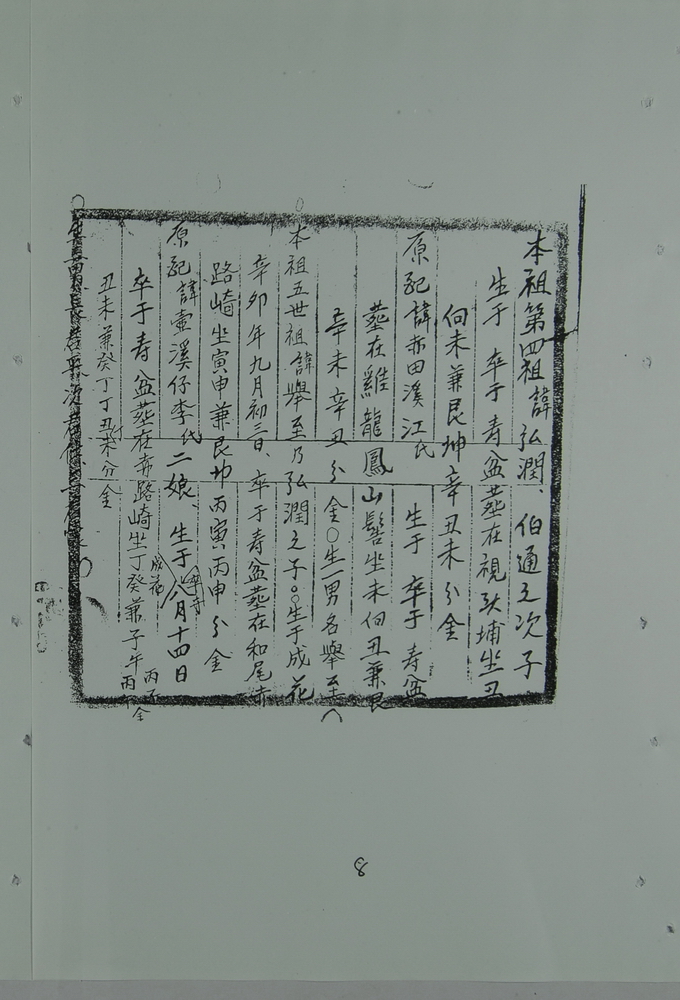 本祖第四祖諱弘潤、伯通之次子
生于　卒于　寿盆葬在視犾埔坐丑
向未兼艮坤辛丑未分金
原配諱赤田溪江氏　生于　卒于　寿盆
葬在雞龍鳳山髻坐未向丑兼艮
辛未辛丑分金○生一男名舉至
本祖五世祖諱舉至乃弘潤之子○○生于成花
辛卯年九月初三日、卒于寿盆葬在和尾赤
路崎坐寅申兼艮坤丙寅丙申分金
原配諱壷溪仔李氏二娘、生于成花八月十四日
卒于寿盆葬在赤路崎坐丁癸兼子午丙子丙午
丑未兼癸丁丁丑丁未分金
8